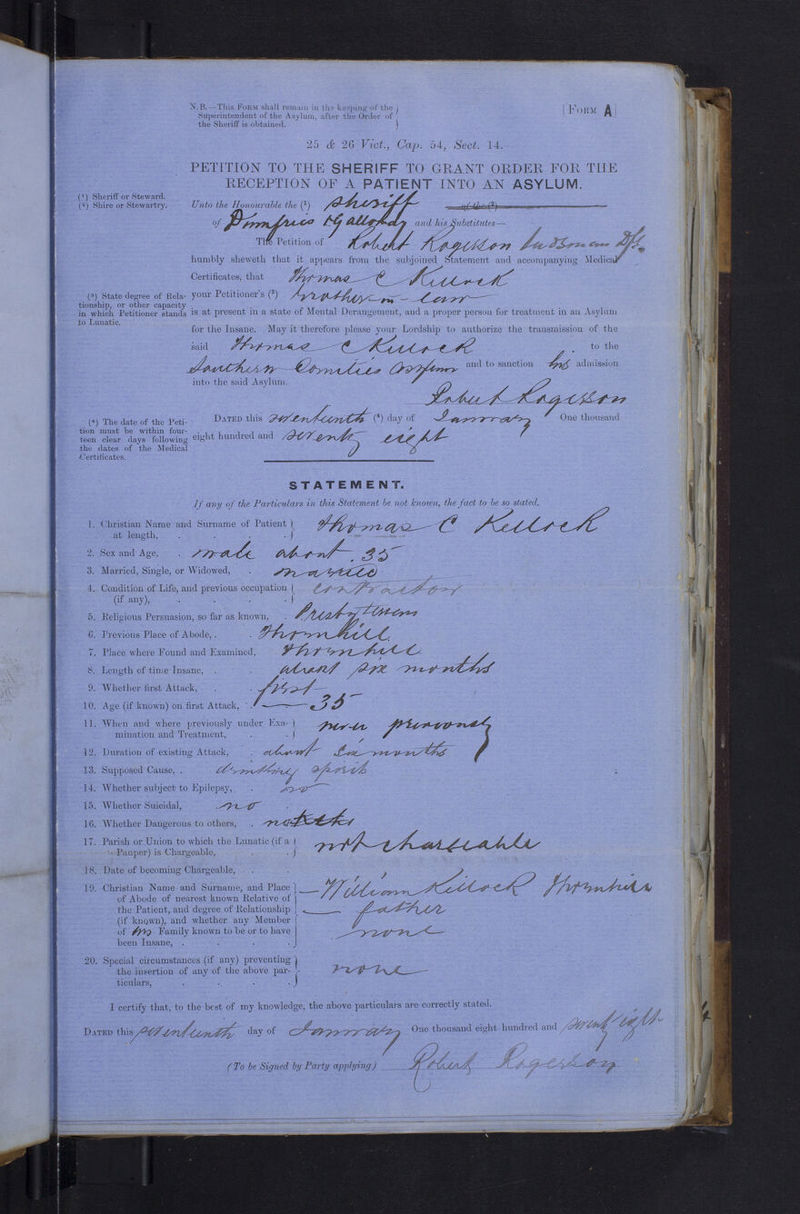 N.B.—This FORM shall remain in the keeping of the
Superintendent of the Asylum, after the Order of
the Sheriff is obtained.
[FORM A]
25 & 26 Vict., Cap. 54, Sect. 14.
PETITION TO THE SHERIFF TO GRANT ORDER FOR THE
RECEPTION OF A PATIENT INTO AN ASYLUM.
(¹) Sheriff or Steward.
(²) Shire or Stewartry.
Unto the Honourable the (¹) Sheriff of the (²)
of Dumfries & Galloway and his Substitutes—
The Petition of Robert Rogerson
humbly sheweth that it appears from the subjoined Statement and accompanying Medical
Certificates, that Thomas C Killock
(³) State degree of Rela-
tionship, or other capacity
in which Petitioner stands
to Lunatic.
your Petitioner's (³) brother-in-law
is at present in a state of Mental Derangement, and a proper person for treatment in an Asylum
for the Insane. May it therefore please your Lordship to authorize the transmission of the
said Thomas C Killock to the
Southern Counties Asylum and to sanction his admission
into the said Asylum.
Robert Rogerson
(⁴) The date of the Peti-
tion must be within four-
teen clear days following
the dates of the Medical
Certificates.
DATED this seventeenth (⁴) day of January One thousand
eight hundred and seventy eight
STATEMENT.
If any of the Particulars in this Statement be not known, the fact to be so stated.
1. Christian Name and Surname of Patient at length, Thomas C Killock
2. Sex and Age, male about 35
3. Married, Single, or Widowed, married
4. Condition of Life, and previous occupation (if any), contractor
5. Religious Persuasion, so far as known, Presbyterian
6. Previous Place of Abode, Thornhill
7. Place where Found and Examined, Thornhill
8. Length of time Insane, about six months
9. Whether first Attack, first
10. Age (if known) on first Attack, 35
11. When and where previously under Exa-
mination and Treatment, never previously
12. Duration of existing Attack, about six months
13. Supposed Cause, drinking spirits
14. Whether subject to Epilepsy, no
15. Whether Suicidal, no
16. Whether Dangerous to others,
17. Parish or Union to which the Lunatic (if a
Pauper) is Chargeable, not chargeable
18. Date of becoming Chargeable,
19. Christian Name and Surname, and Place
of Abode of nearest known Relative of
the Patient, and degree of Relationship
(if known), and whether any Member
of his Family known to be or to have
been Insane,
William Killock Thornhill
father
none
20. Special circumstances (if any) preventing
the insertion of any of the above par-
ticulars, none
I certify that, to the best of my knowledge, the above particulars are correctly stated.
DATED this seventeenth day of January One thousand eight hundred and seventy eight
(To be Signed by Party applying) Robert Rogerson